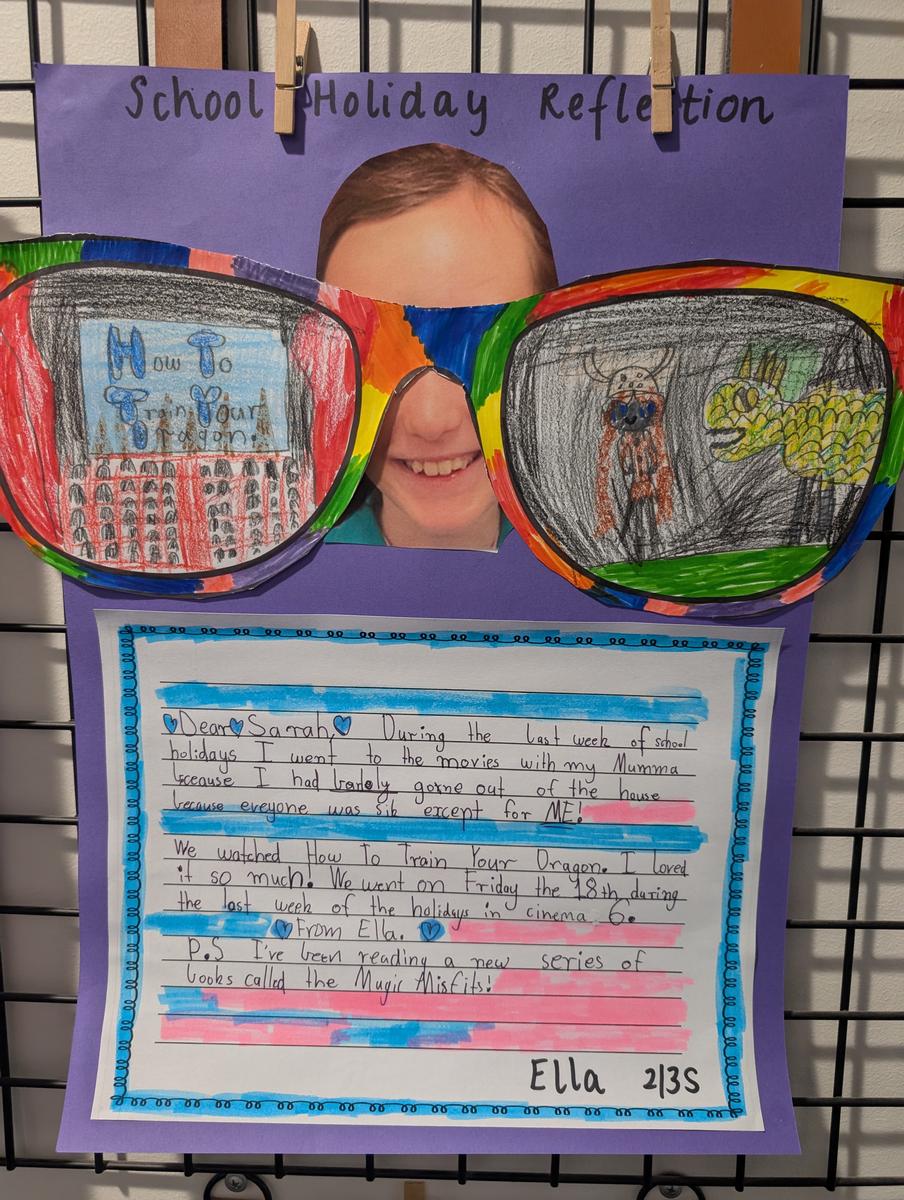 School Holiday Reflection
How To
Train Your
Dragon.
Dear Sarah, During the last week of school
holidays I went to the movies with my Mumma
because I had barely gorne out of the house
because everyone was sik except for ME!
We watched How To Train Your Dragon. I loved
it so much! We went on Friday the 18th during
the last week of the holidays in cinema 6.
From Ella.
P.S I've been reading a new series of
books called the Magic Misfits!
Ella 2/3S